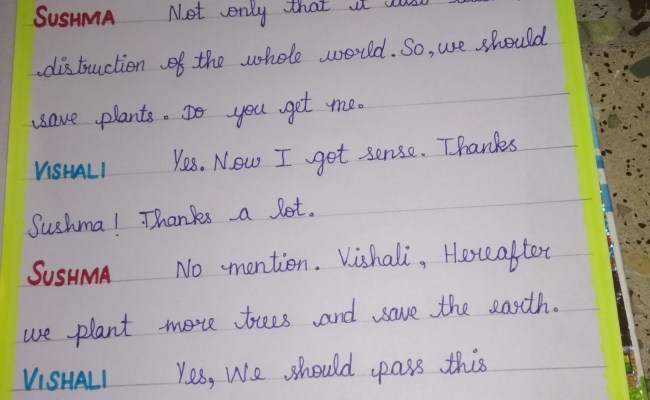 SUSHMA Not only that it
distruction of the whole world. So, we should
save plants. Do you get me.
VISHALI Yes. Now I got sense. Thanks
Sushma! Thanks a lot.
SUSHMA No mention. Vishali, Hereafter
we plant more trees and save the earth.
VISHALI Yes, We should pass this